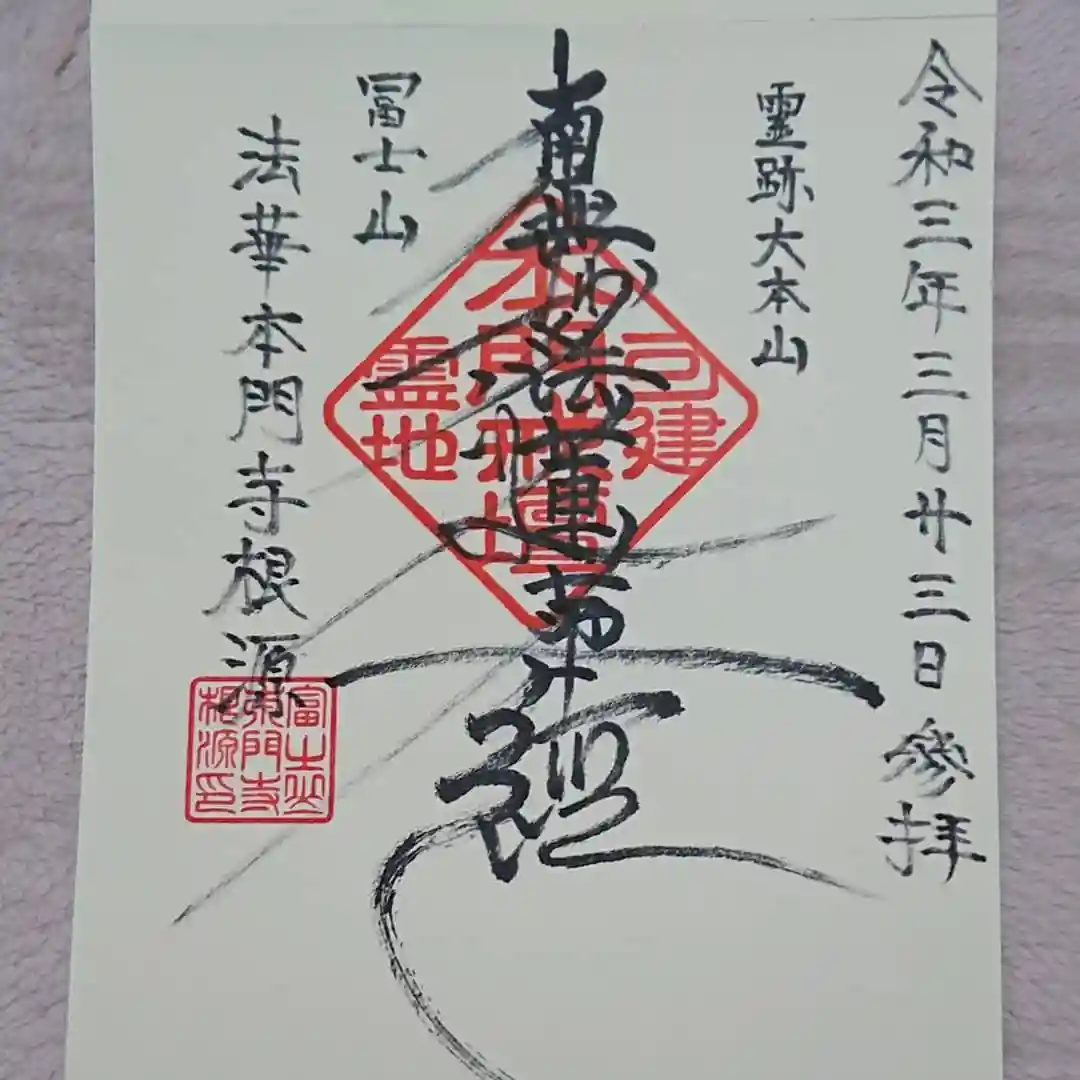 令和三年三月廿三日參拝
霊跡大本山
南無妙法蓮華経
可建
本門戒壇
霊地
冨士山
法華本門寺根源
富士山
本門寺
根源印